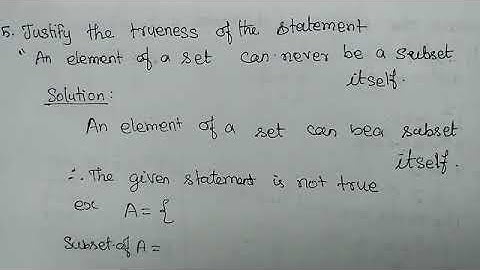 5. Justify the trueness of the statement
" An element of a set can never be a subset
itself.
Solution:
An element of a set can be a subset
itself.
∴ The given statement is not true
ex A = {
Subset of A =